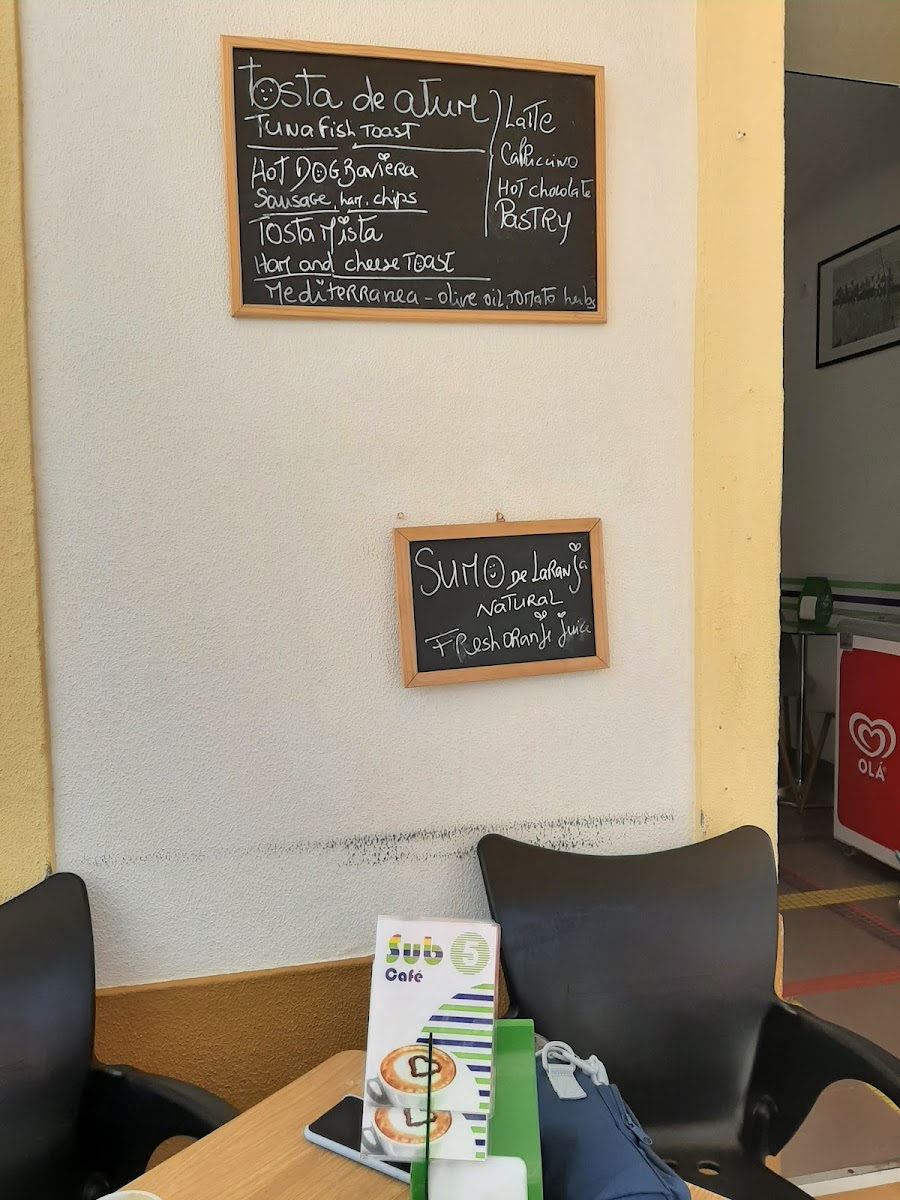 Tosta de atum
Tuna fish Toast
Hot Dog Baviera
Sausage, ham, chips
Tosta Mista
Ham and cheese Toast
Mediterranea - olive oil, Tomato herbs
Latte
Cappuccino
Hot chocolate
Pastry
Sumo de Laranja
Natural
Fresh Oranje juice
OLÁ
Sub 5
Café